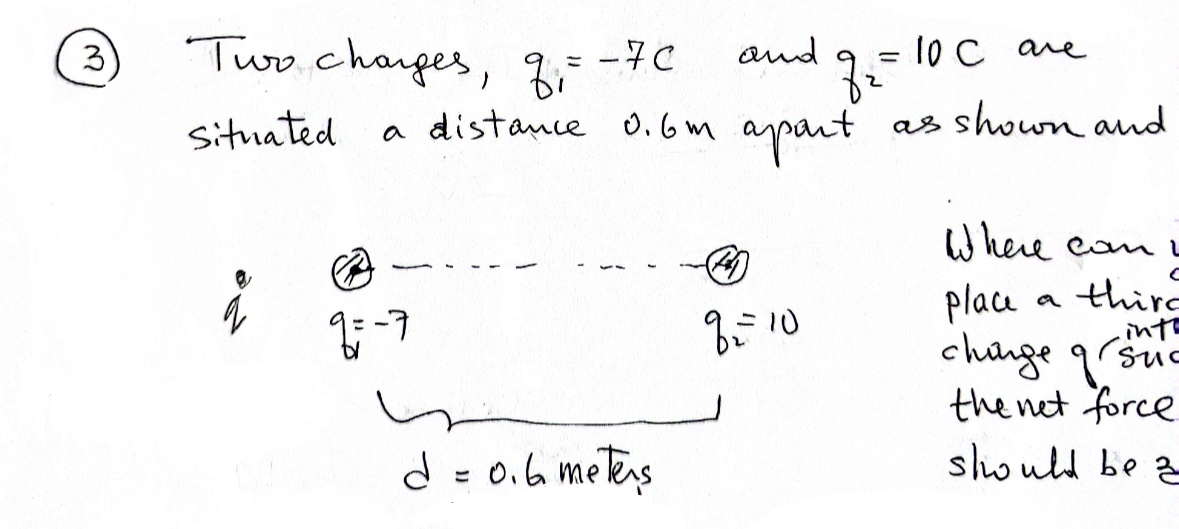 3 Two charges, q₁ = -7C and q₂ = 10 C are
situated a distance 0.6m apart as shown and
q
q₁ = -7
q₂ = 10
d = 0.6 meters
Where can
place a
charge q
the net force
should be